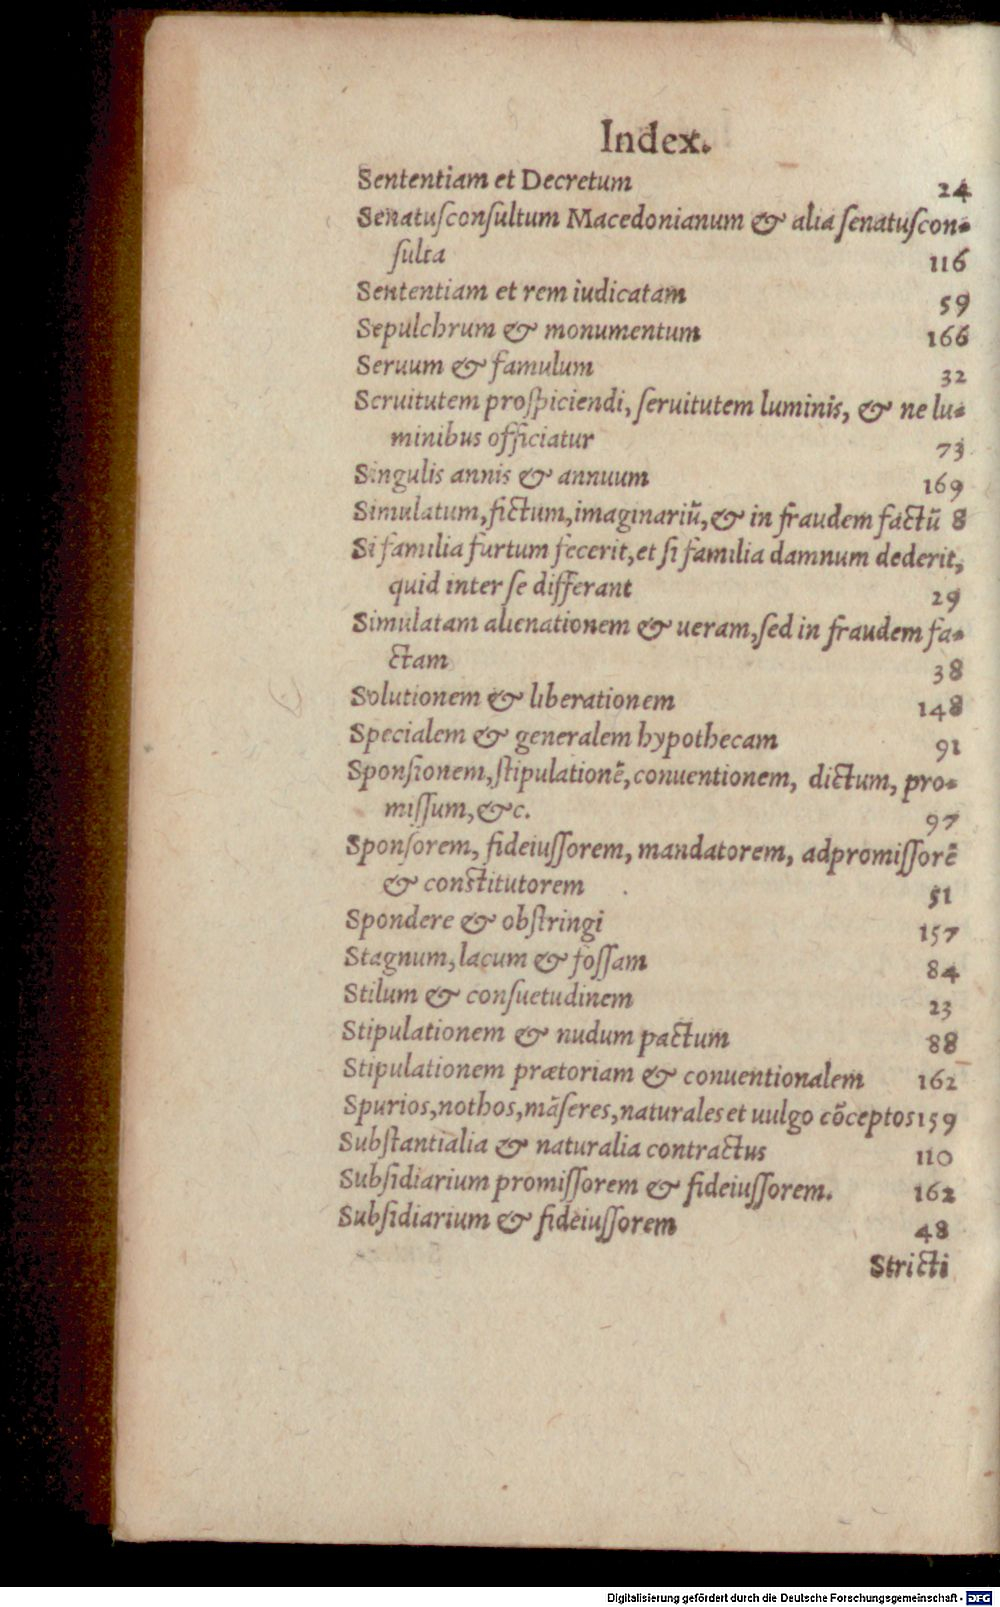 Index.
Sententiam et Decretum 24
Senatuſconſultum Macedonianum & alia ſenatuſcon-
ſulta 116
Sententiam et rem iudicatam 59
Sepulchrum & monumentum 166
Seruum & famulum 32
Seruitutem proſpiciendi, ſeruitutem luminis, & ne lu-
minibus officiatur 73
Singulis annis & annuum 169
Simulatum, fictum, imaginariũ, & in fraudem factũ 8
Si familia furtum fecerit, et ſi familia damnum dederit,
quid inter ſe differant 29
Simulatam alienationem & ueram, ſed in fraudem fa-
ctam 38
Solutionem & liberationem 148
Specialem & generalem hypothecam 91
Sponſionem, ſtipulationẽ, conuentionem, dictum, pro-
miſſum, &c. 97
Sponſorem, fideiuſſorem, mandatorem, adpromiſſorẽ
& constitutorem 51
Spondere & obſtringi 157
Stagnum, lacum & foſſam 84
Stilum & conſuetudinem 23
Stipulationem & nudum pactum 88
Stipulationem prætoriam & conuentionalem 162
Spurios, nothos, mãſeres, naturales et uulgo cõceptos 159
Subſtantialia & naturalia contractus 110
Subſidiarium promiſſorem & fideiuſſorem. 162
Subſidiarium & fideiuſſorem 48
Stricti
Digitalisierung gefördert durch die Deutsche Forschungsgemeinschaft - DFG